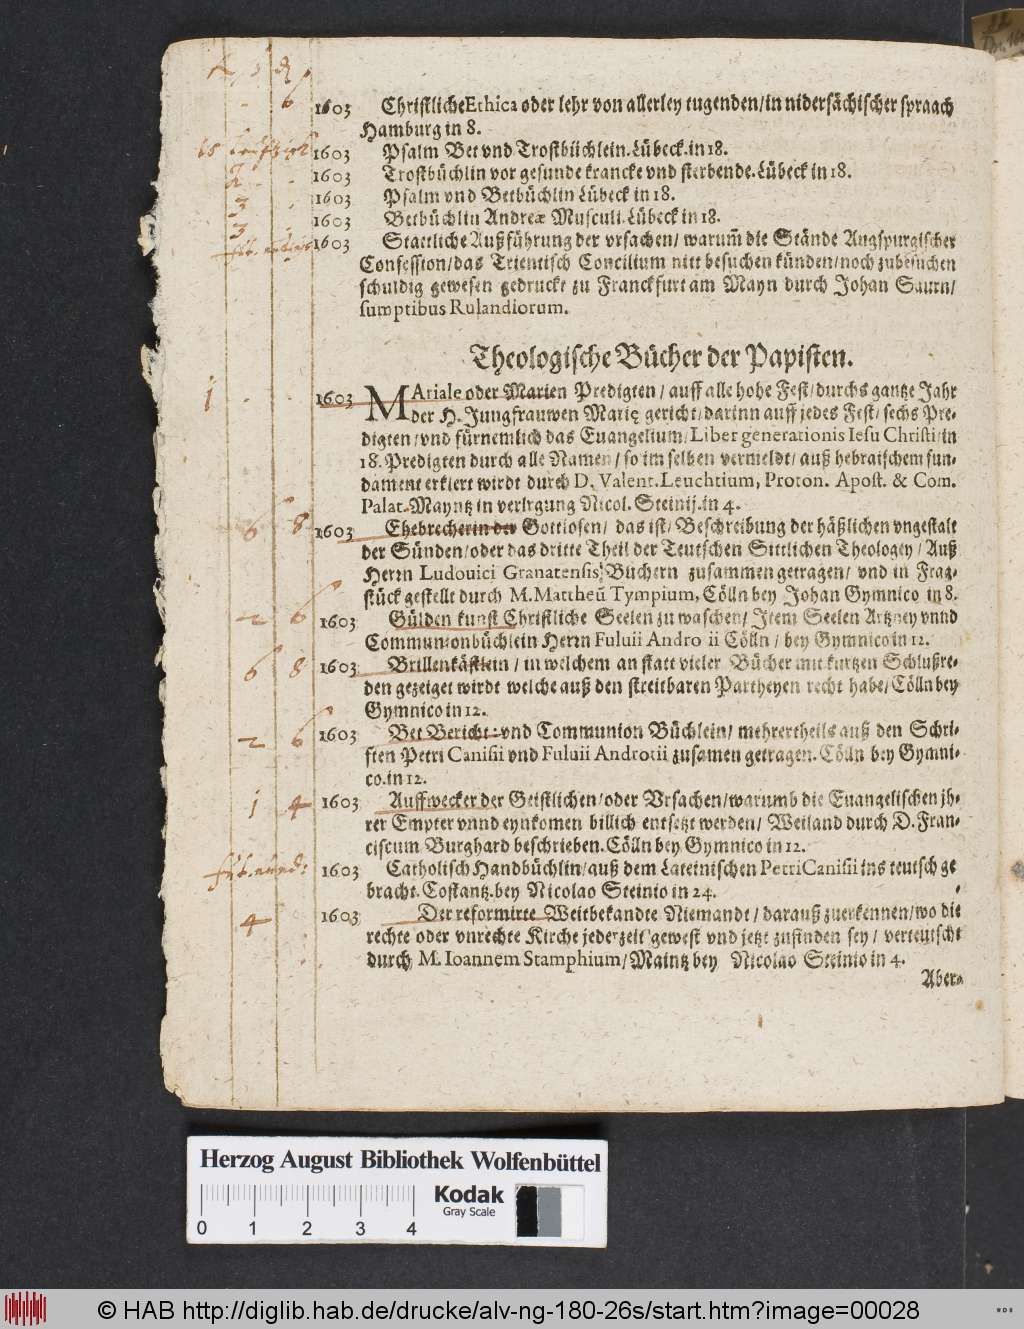 6 1603 Christliche Ethica oder lehr von allerley tugenden/ in nidersächischer spraach
Hamburg in 8.
1603 Psalm Bet vnd Trostbüchlein. Lübeck. in 18.
2 1603 Trostbüchlin vor gesunde krancke vnd sterbende. Lübeck in 18.
3 1603 Psalm vnd Betbüchlin Lübeck in 18.
3 1603 Betbüchlin Andreæ Musculi. Lübeck in 18.
1603 Stattliche Außführung der vrsachen/ warum̃ die Stände Augspurgischer
Confession/ das Trientisch Concilium nitt besuchen künden/ noch zubesuchen
schuldig gewesen gedruckt zu Franckfurt am Mayn durch Johan Saurn/
sumptibus Rulandiorum.
Theologische Bücher der Papisten.
1 1603 MAriale oder Marien Predigten / auff alle hohe Fest/ durchs gantze Jahr
der H. Jungfrauwen Marię gericht/ darinn auff jedes Fest/ sechs Pre-
digten/ vnd fürnemlich das Euangelium/ Liber generationis Iesu Christi/ in
18. Predigten durch alle Namen/ so im selben vermeldt/ auß hebraischem fun-
dament erklert wirdt durch D. Valent. Leuchtium, Proton. Apost. & Com.
Palat. Mayntz in verlegung Nicol. Steinij. in 4.
6 8 1603 Ehebrecherin der Gottlosen/ das ist/ Beschreibung der häßlichen vngestalt
der Sünden/ oder das dritte Theil der Teutschen Sittlichen Theologey / Auß
Herrn Ludouici Granatensis Büchern zusammen getragen/ vnd in Frag-
stück gestellt durch M. Mattheũ Tympium, Cölln bey Johan Gymnico in 8.
2 6 1603 Gülden kunst Christliche Seelen zu waschen/ Item Seelen Artzney vnnd
Communionbüchlein Herrn Fuluii Andro ii Cölln / bey Gymnico in 12.
6 8 1603 Brillenkästlein / in welchem an statt vieler Bücher mit kurtzen Schlußre-
den gezeiget wirdt welche auß den streitbaren Partheyen recht habe/ Cölln bey
Gymnico in 12.
2 6 1603 Bet Bericht- vnd Communion Büchlein/ mehrertheils auß den Schri-
ften Petri Canisii vnd Fuluii Androtii zusamen getragen. Cölln bey Gymni-
co. in 12.
1 4 1603 Auffwecker der Geistlichen/ oder Vrsachen/ warumb die Euangelischen jh-
rer Empter vnnd eynkomen billich entsetzt werden/ Weiland durch D. Fran-
ciscum Burghard beschrieben. Cölln bey Gymnico in 12.
1603 Catholisch Handbüchlin/ auß dem Lateinischen Petri Canisii ins teutsch ge
bracht. Costantz. bey Nicolao Steinio in 24.
4 1603 Der reformirte Weitbekandte Niemandt / darauß zuerkennen/ wo die
rechte oder vnrechte Kirche jederzeit gewest vnd jetzt zufinden sey/ verteutscht
durch M. Ioannem Stamphium/ Maintz bey Nicolao Steinio in 4.
Aber-
Herzog August Bibliothek Wolfenbüttel
Kodak
Gray Scale
0 1 2 3 4
© HAB http://diglib.hab.de/drucke/alv-ng-180-26s/start.htm?image=00028